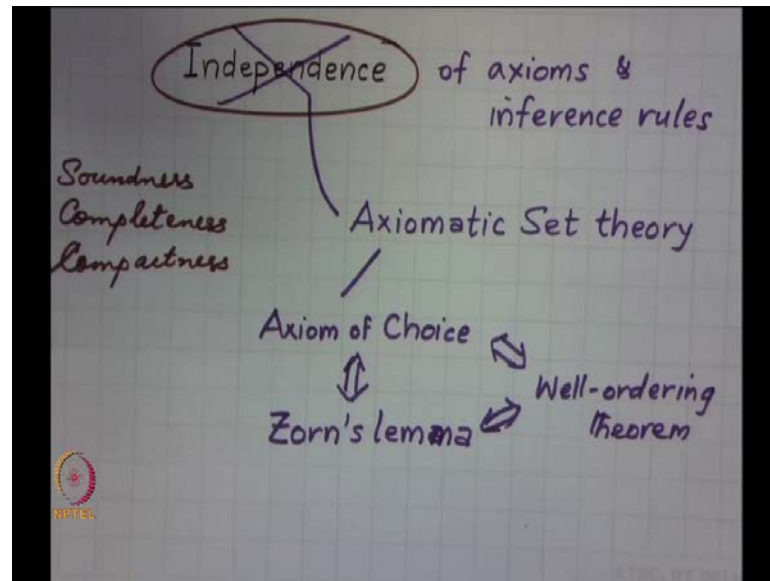 Independence of axioms &
inference rules
Soundness
Completeness
Compactness
Axiomatic Set theory
Axiom of Choice
Well-ordering
Theorem
Zorn's lemma
NPTEL